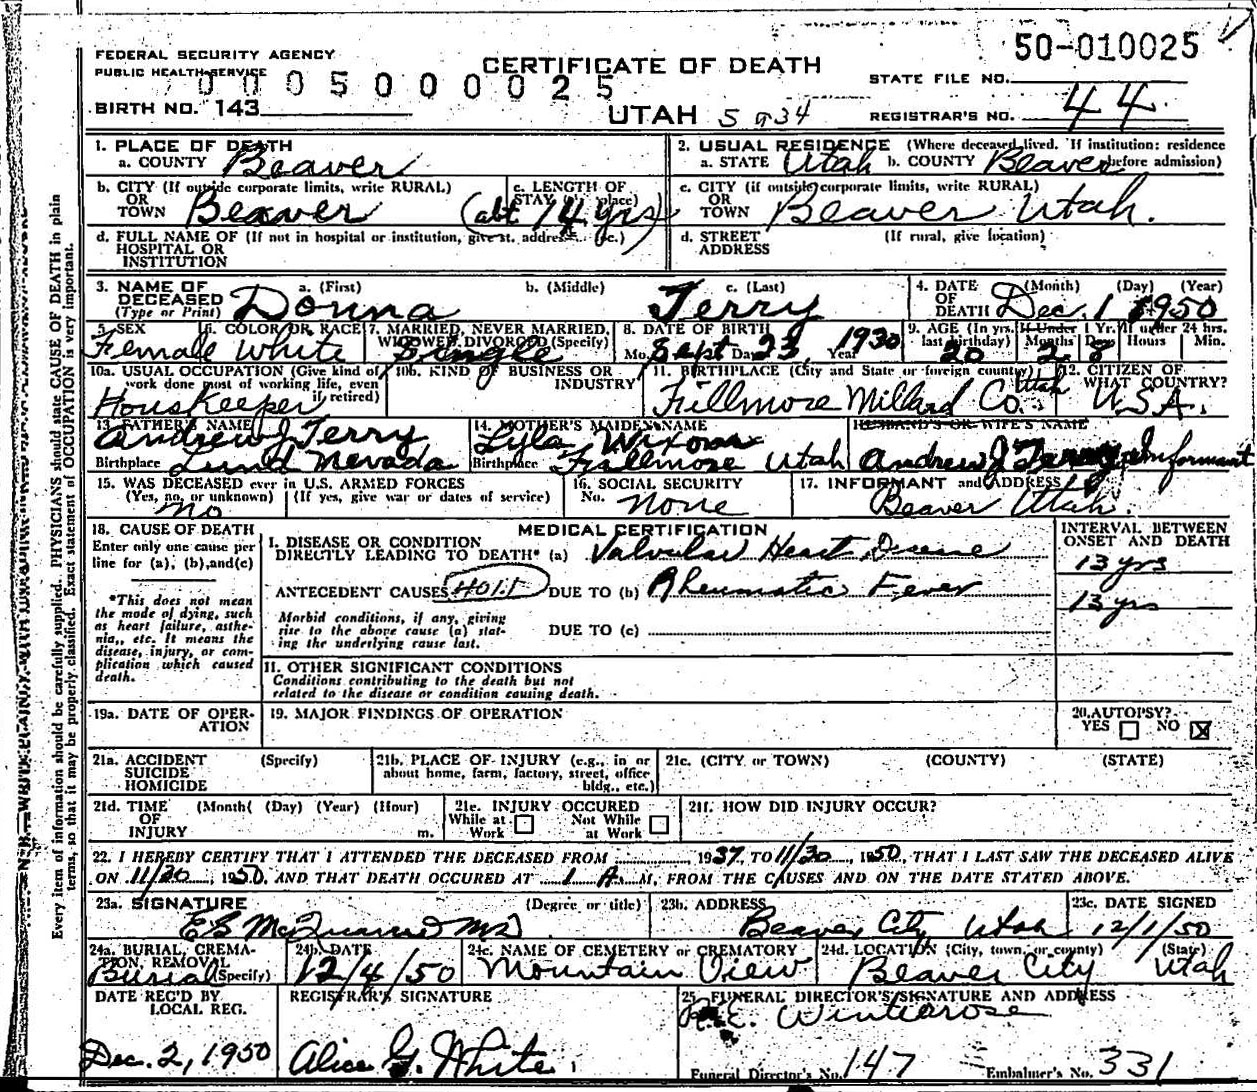 50-010025
FEDERAL SECURITY AGENCY
PUBLIC HEALTH SERVICE
0 0 0 5 0 0 0 0 2 5
CERTIFICATE OF DEATH
STATE FILE NO.
BIRTH NO. 143
UTAH 5 9 34
REGISTRAR'S NO. 44
1. PLACE OF DEATH
a. COUNTY Beaver
2. USUAL RESIDENCE (Where deceased lived. If institution: residence before admission)
a. STATE Utah b. COUNTY Beaver
b. CITY (If outside corporate limits, write RURAL) OR TOWN Beaver
c. LENGTH OF STAY (place) (abt 14 yrs)
c. CITY (if outside corporate limits, write RURAL) OR TOWN Beaver Utah.
d. FULL NAME OF (If not in hospital or institution, give st. address, etc.) HOSPITAL OR INSTITUTION
d. STREET ADDRESS (If rural, give location)
3. NAME OF DECEASED (Type or Print)
a. (First) Donna b. (Middle) c. (Last) Terry
4. DATE OF DEATH (Month) (Day) (Year) Dec. 1 1950
5. SEX Female
6. COLOR OR RACE White
7. MARRIED, NEVER MARRIED, WIDOWED, DIVORCED (Specify) Single
8. DATE OF BIRTH Mo. Sept Day 23, Year 1930
9. AGE (In yrs. last birthday) 20
If Under 1 Yr. Months 2 Days 8
If under 24 hrs. Hours Min.
10a. USUAL OCCUPATION (Give kind of work done most of working life, even if retired) Houskeeper
10b. KIND OF BUSINESS OR INDUSTRY
11. BIRTHPLACE (City and State or foreign country) Fillmore Millard Co. Utah
12. CITIZEN OF WHAT COUNTRY? U.S.A.
13. FATHER'S NAME Andrew J Terry
Birthplace Lund Nevada
14. MOTHER'S MAIDEN NAME Lyla Wixom
Birthplace Fillmore Utah
HUSBAND'S OR WIFE'S NAME
Andrew J Terry Informant
15. WAS DECEASED ever in U.S. ARMED FORCES
(Yes, no, or unknown) (If yes, give war or dates of service)
No
16. SOCIAL SECURITY No. None
17. INFORMANT and ADDRESS
Beaver Utah.
18. CAUSE OF DEATH
Enter only one cause per line for (a), (b), and (c)
*This does not mean the mode of dying, such as heart failure, asthenia, etc. It means the disease, injury, or complication which caused death.
MEDICAL CERTIFICATION
INTERVAL BETWEEN ONSET AND DEATH
I. DISEASE OR CONDITION
DIRECTLY LEADING TO DEATH* (a) Valvular Heart Disease 13 yrs
ANTECEDENT CAUSES 401.1 DUE TO (b) Rheumatic Fever 13 yrs
Morbid conditions, if any, giving rise to the above cause (a) stating the underlying cause last.
DUE TO (c)
II. OTHER SIGNIFICANT CONDITIONS
Conditions contributing to the death but not related to the disease or condition causing death.
19a. DATE OF OPERATION
19. MAJOR FINDINGS OF OPERATION
20. AUTOPSY? YES NO X
21a. ACCIDENT SUICIDE HOMICIDE (Specify)
21b. PLACE OF INJURY (e.g., in or about home, farm, factory, street, office bldg., etc.)
21c. (CITY or TOWN) (COUNTY) (STATE)
21d. TIME OF INJURY (Month) (Day) (Year) (Hour) m.
21e. INJURY OCCURED While at Work Not While at Work
21f. HOW DID INJURY OCCUR?
22. I HEREBY CERTIFY THAT I ATTENDED THE DECEASED FROM 1937 TO 11/30, 1950, THAT I LAST SAW THE DECEASED ALIVE
ON 11/30, 1950, AND THAT DEATH OCCURED AT 1 A. M, FROM THE CAUSES AND ON THE DATE STATED ABOVE.
23a. SIGNATURE (Degree or title)
23b. ADDRESS Beaver City Utah
23c. DATE SIGNED 12/1/50
24a. BURIAL, CREMATION, REMOVAL (Specify) Burial
24b. DATE 12/4/50
24c. NAME OF CEMETERY or CREMATORY Mountain View
24d. LOCATION (City, town, or county) (State) Beaver City Utah
DATE REC'D BY LOCAL REG. Dec. 2, 1950
REGISTRAR'S SIGNATURE Alice G. White
25. FUNERAL DIRECTOR'S SIGNATURE AND ADDRESS
Funeral Director's No. 147 Embalmer's No. 331
Every item of information should be carefully supplied. PHYSICIANS should state CAUSE OF DEATH in plain
terms, so that it may be properly classified. Exact statement of OCCUPATION is very important.